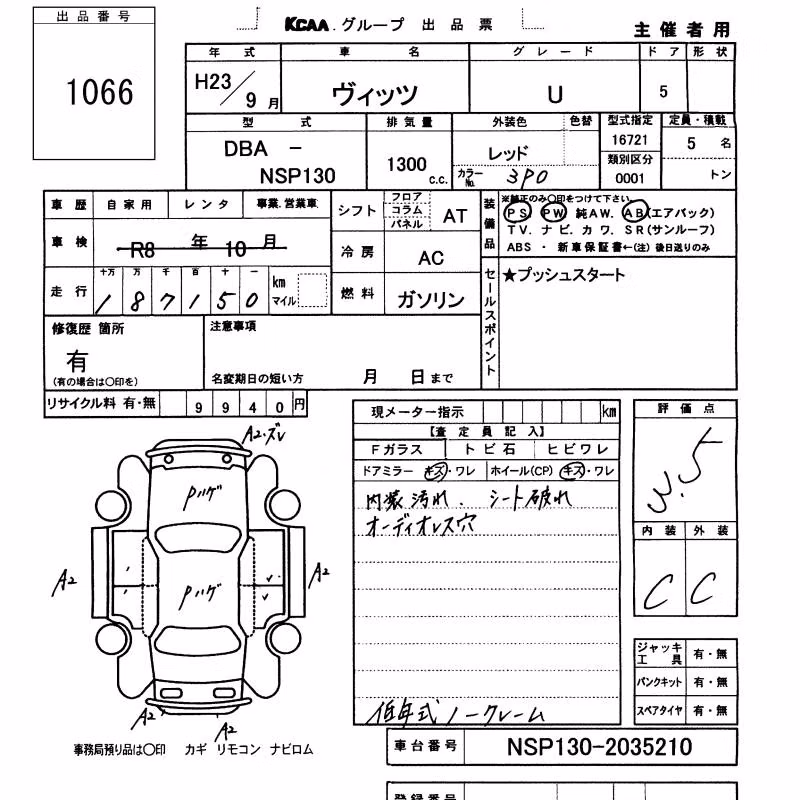 出品番号
1066
KCAA.グループ 出品票
主催者用
年式 車名 グレード ドア 形状
H23/9月 ヴィッツ U 5
型式 排気量 外装色 色替 型式指定 定員・積載
DBA － NSP130 1300 c.c. レッド 16721 5 名
カラーNo. 3P0 類別区分 0001 トン
車歴 自家用 レンタ 事業.営業車
シフト フロア コラム パネル AT
装備品 ※純正のみ〇印をつけて下さい。
PS PW 純AW. AB(エアバック)
TV. ナビ. カワ. SR(サンルーフ)
ABS ・ 新車保証書←(注)後日送りのみ
車検 R8 年 10 月
冷房 AC
走行 十万 万 千 百 十 一
187150 km マイル
燃料 ガソリン
セールスポイント ★プッシュスタート
修復歴 箇所
有
(有の場合は〇印を)
注意事項
名変期日の短い方 月 日まで
リサイクル料 有・無 9940円
現メーター指示 km
【査定員記入】
Fガラス トビ石 ヒビワレ
ドアミラー キズ・ワレ ホイール(CP) キズ・ワレ
内装汚れ、シート破れ
オーディオレス穴
低年式ノークレーム
評価点
3.5
内装 外装
C C
ジャッキ工具 有・無
パンクキット 有・無
スペアタイヤ 有・無
A2・ズレ
Pハゲ
Pハゲ
A2
A2
A2
A2
事務局預り品は〇印 カギ リモコン ナビロム
車台番号 NSP130-2035210
登録番号